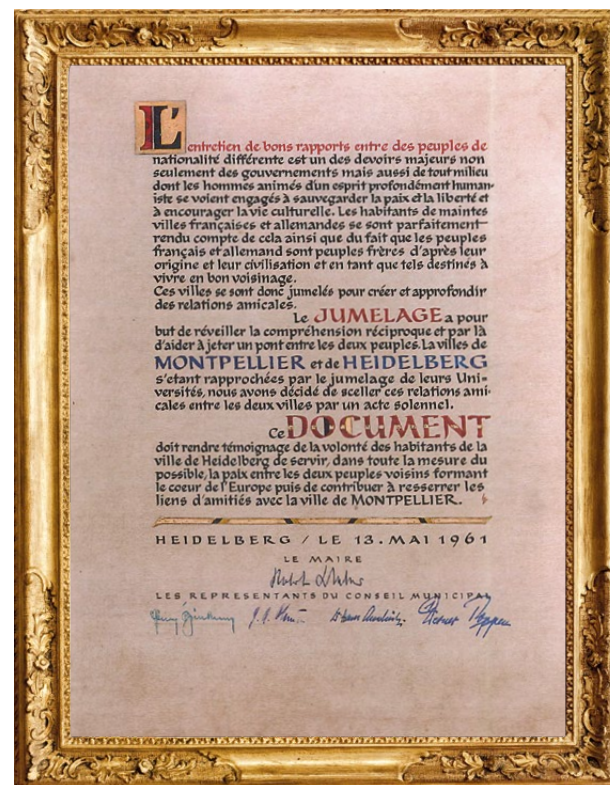 L'entretien de bons rapports entre des peuples de
nationalité différente est un des devoirs majeurs non
seulement des gouvernements mais aussi de tout milieu
dont les hommes animés d'un esprit profondément human-
iste se voient engagés à sauvegarder la paix et la liberté et
à encourager la vie culturelle. Les habitants de maintes
villes françaises et allemandes se sont parfaitement
rendu compte de cela ainsi que du fait que les peuples
français et allemand sont peuples frères d'après leur
origine et leur civilisation et en tant que tels destinés à
vivre en bon voisinage.
Ces villes se sont donc jumelés pour créer et approfondir
des relations amicales.
Le JUMELAGE a pour
but de réveiller la compréhension réciproque et par là
d'aider à jeter un pont entre les deux peuples. La villes de
MONTPELLIER et de HEIDELBERG
s'etant rapprochées par le jumelage de leurs Uni-
versités, nous avons décidé de sceller ces relations ami-
cales entre les deux villes par un acte solennel.
Ce DOCUMENT
doit rendre témoignage de la volonté des habitants de la
ville de Heidelberg de servir, dans toute la mesure du
possible, la paix entre les deux peuples voisins formant
le coeur de l'Europe puis de contribuer à resserrer les
liens d'amitiés avec la ville de MONTPELLIER.
HEIDELBERG / LE 13. MAI 1961
LE MAIRE
LES REPRESENTANTS DU CONSEIL MUNICIPAL